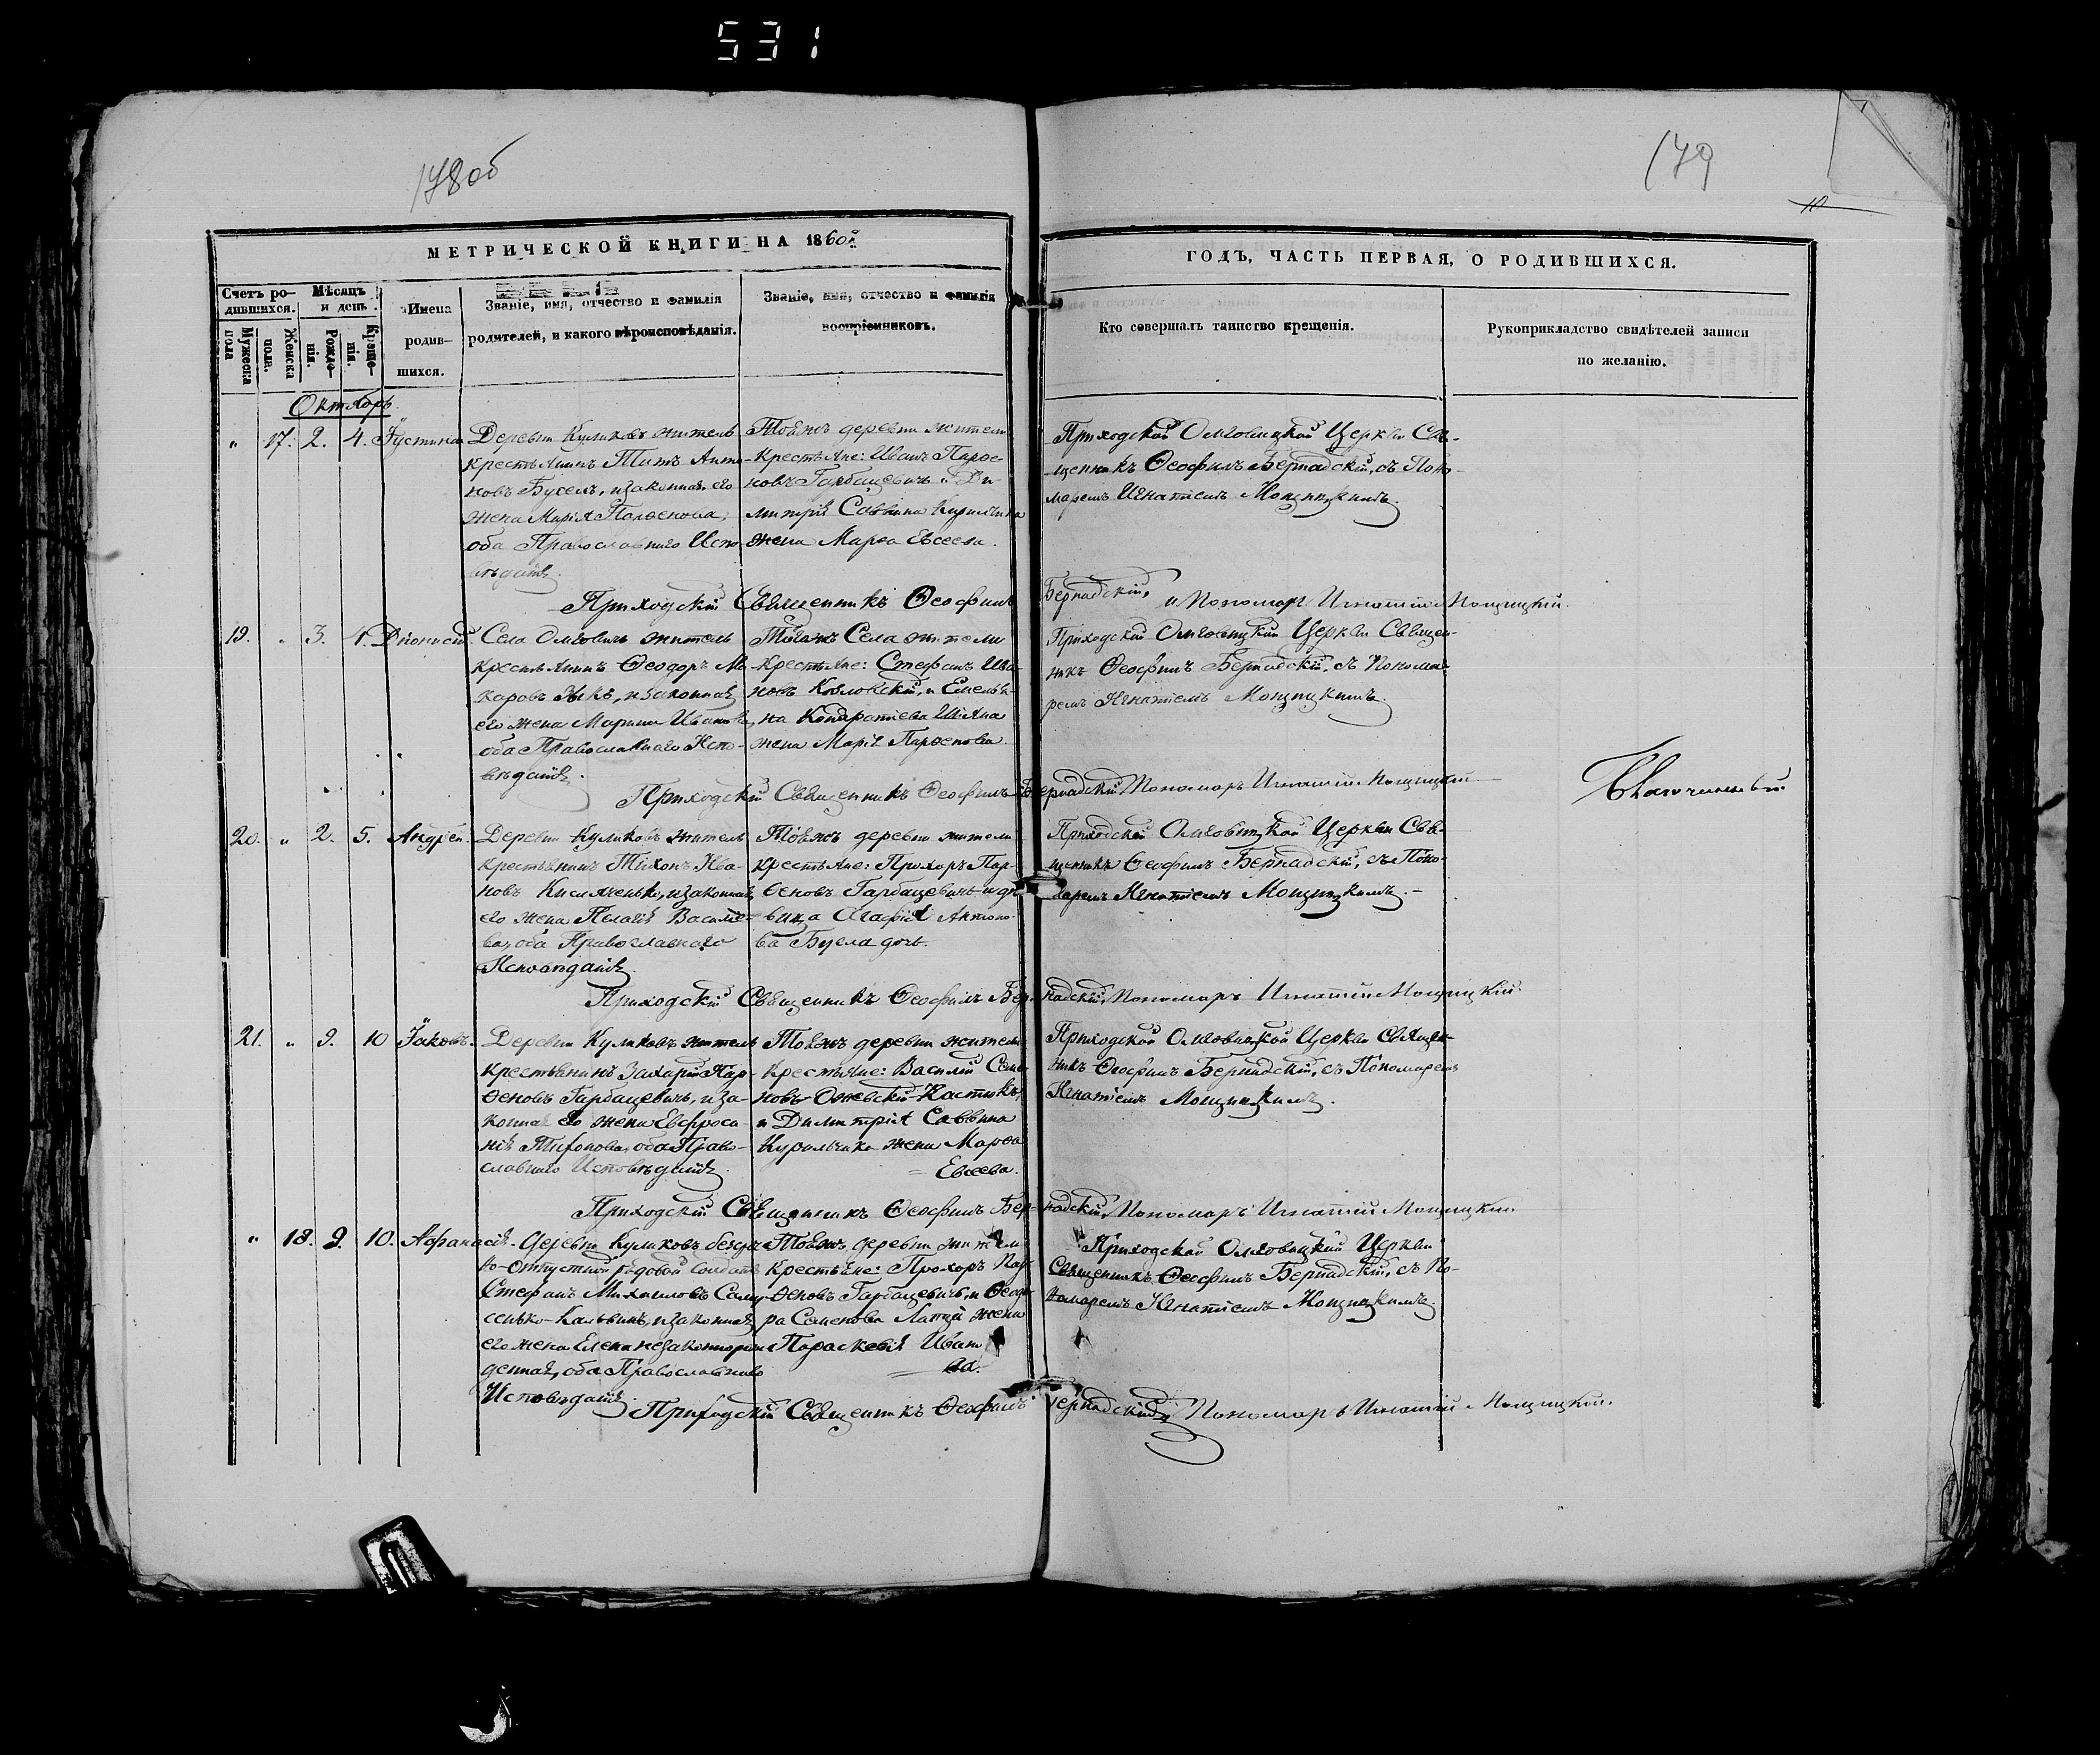 531
178об
179
МЕТРИЧЕСКОЙ КНИГИ НА 1860й
ГОДЪ, ЧАСТЬ ПЕРВАЯ, О РОДИВШИХСЯ.
Счетъ ро-
дившихся.
Мѣсяцъ
и день.
Мужеска
пола
Женска
пола.
Рожде-
нія.
Креще-
нія.
Имена
родив-
шихся.
Званіе, имя, отчество и фамилія
родителей, и какого вѣроисповѣданія.
Званіе, имя, отчество и фамилія
воспріемниковъ.
Кто совершалъ таинство крещенія.
Рукоприкладство свидѣтелей записи
по желанію.
Октябрь.
" 17. 2. 4. Іустина
Деревни Куликовъ житель
крестьянинъ Титъ Анто-
новъ Бусель, и законная его
жена Марія Парѳенова,
оба Православнаго Испо-
вѣданія.
Тояжъ деревни жители
крестьяне: Иванъ Парѳе-
новъ Гарбацевичъ и Ди-
митрія Саввина Курильчика
жена Марѳа Евсеева.
Приходской Омговицкой Церкви Свя-
щенникъ Ѳеофилъ Бернадскій, съ Поно-
маремъ Игнатіемъ Мощицкимъ.
Приходскій Священникъ Ѳеофилъ Бернадскій, и Пономарь Игнатій Мощицкій.
19. " 3. 4. Діонисій.
Села Омговичъ житель
крестьянинъ Ѳеодоръ Ма-
каровъ и законная
его жена Марина Иванова,
оба Православнаго Испо-
вѣданія.
Тогожъ Села жители
крестьяне: Стефанъ Ива-
новъ Козловскій, и Емелья-
на Кондратіева
жена Марія Парѳенова.
Приходской Омговицкой Церкви Священ-
никъ Ѳеофилъ Бернадскій, съ Понома-
ремъ Игнатіемъ Мощицкимъ.
Приходскій Священникъ Ѳеофилъ Бернадскій Пономарь Игнатій Мощицкій.
Благочинный
20. " 2. 5. Андрей.
Деревни Куликовъ житель
крестьянинъ Тихонъ Ива-
новъ Кисляченко, и законная
его жена Пелагія Василіе-
ва, оба Православнаго
Исповѣданія.
Тояжъ деревни жители
крестьяне: Прохоръ Пар-
ѳеновъ Гарбацевичъ и дѣ-
вица Агафія Антоно-
ва Бусла дочь.
Приходской Омговицкой Церкви Свя-
щенникъ Ѳеофилъ Бернадскій, съ Поно-
маремъ Игнатіемъ Мощицкимъ.
Приходскій Священникъ Ѳеофилъ Бернадскій, Пономарь Игнатій Мощицкій.
21. " 9. 10 Іаковъ.
Деревни Куликовъ житель
крестьянинъ Захарій Пар-
ѳеновъ Гарбацевичъ, и за-
конная его жена Евфроси-
нія Тихонова, оба Право-
славнаго Исповѣданія.
Тояжъ деревни жители
крестьяне: Василій Семе-
новъ
и Димитрія Саввина
Курильчика жена Марѳа
Евсеева.
Приходской Омговицкой Церкви Священ-
никъ Ѳеофилъ Бернадскій, съ Пономаремъ
Игнатіемъ Мощицкимъ.
Приходскій Священникъ Ѳеофилъ Бернадскій, Пономарь Игнатій Мощицкій.
" 18. 9. 10. Афанасія.
Деревни Куликовъ безсроч-
но-отпустной рядовой солдатъ
Стефанъ Михаиловъ
и законная
его жена Елена незаконнорож-
денная, оба Православнаго
Исповѣданія.
Тояжъ деревни жители
крестьяне: Прохоръ Пар-
ѳеновъ Гарбацевичъ, и Ѳеодо-
ра Семенова жена
Параскевія Ивано-
ва.
Приходской Омговицкой Церкви
Священникъ Ѳеофилъ Бернадскій, съ По-
номаремъ Игнатіемъ Мощицкимъ.
Приходскій Священникъ Ѳеофилъ Бернадскій, Пономарь Игнатій Мощицкій.